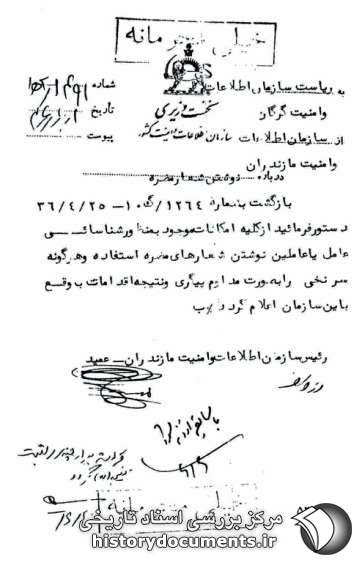 خیلی محرمانه
به ریاست سازمان اطلاعات
وامنیت گرگان
نخست وزیری
سازمان اطلاعات و امنیت کشور
شماره
تاریخ
پیوست
از سازمان اطلاعات
وامنیت مازندران
درباره نوشتن شعار مضره
بازگشت بشماره ۱۲۶۴/گ ۱۰-۳۶/۴/۲۵
دستور فرمائید از کلیه امکانات موجود بمنظور شناسائی
عامل یا عاملین نوشتن شعارهای مضره استفاده و هرگونه
سرنخی را بصورت مداوم پیگیری و نتیجه اقدامات بموقع
باین سازمان اعلام گردد
رئیس سازمان اطلاعات وامنیت مازندران - عمید
خیلی محرمانه
مرکز بررسی اسناد تاریخی
historydocuments.ir